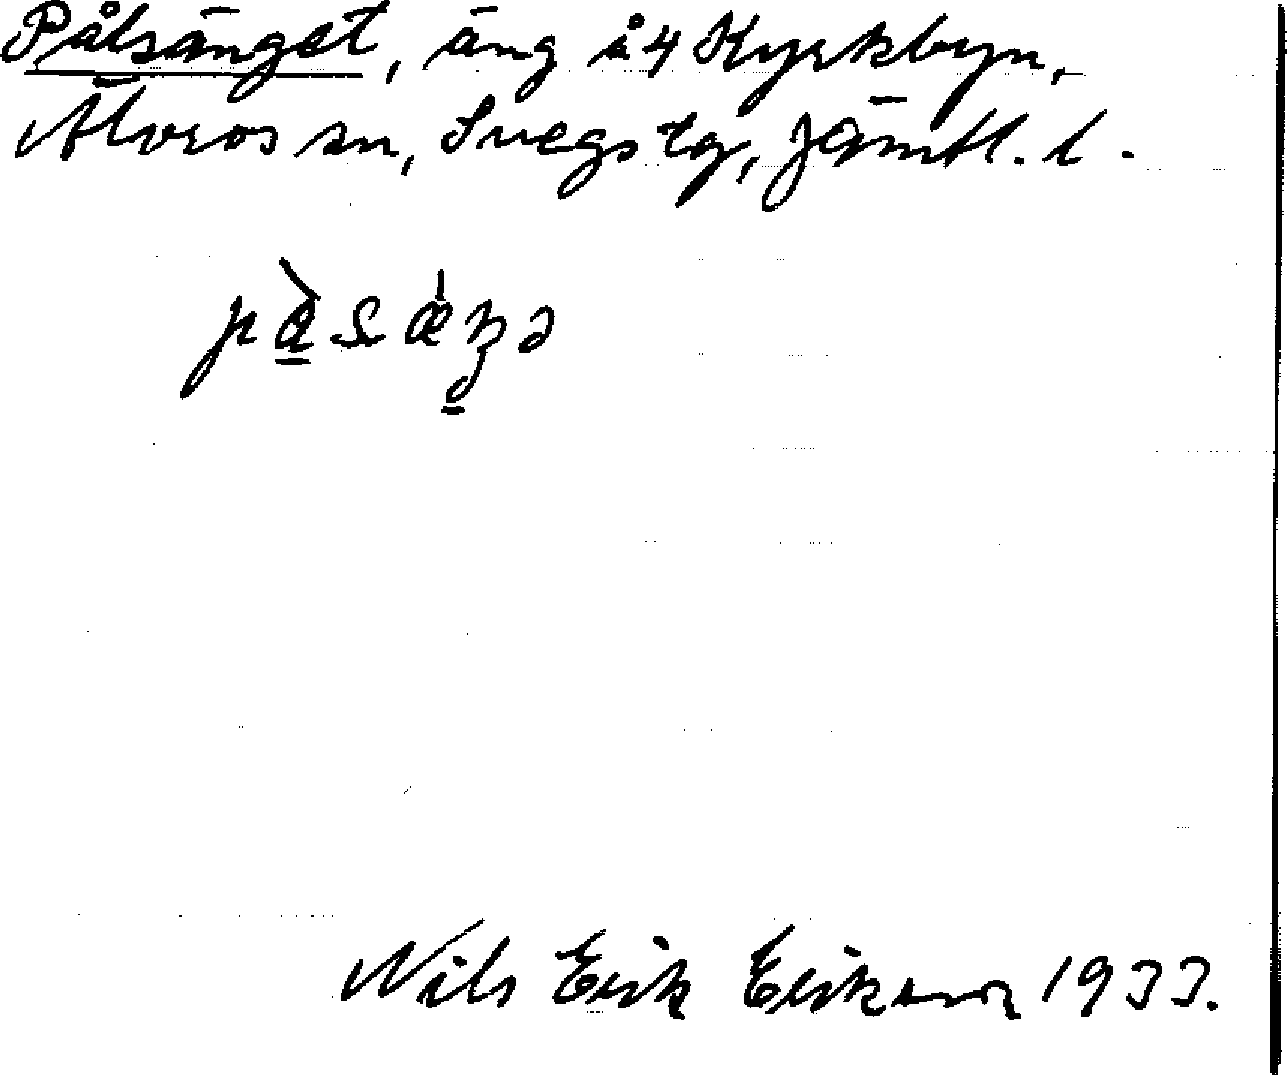 Pålsänget, äng å 4 Kyrkbyn,
Älvros sn, Svegs tg, Jämtl. l.
pàsǽŋə
Nils Erik Eriksson 1933.